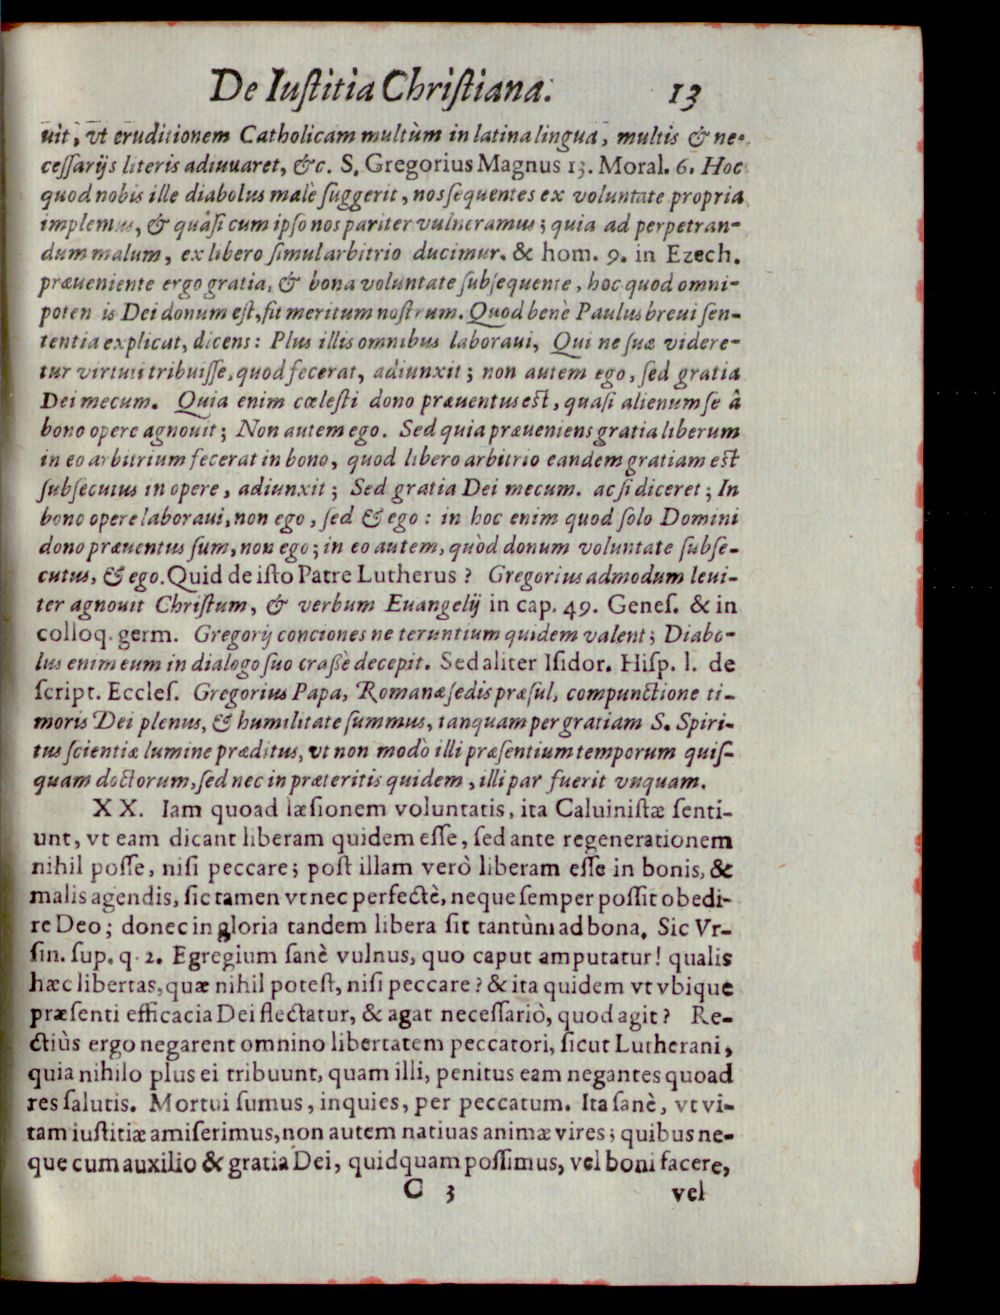 De Iuſtitia Chriſtiana. 13
uit, vt eruditionem Catholicam multùm in latina lingua, multis & ne-
ceſſarijs literis adiuuaret, &c. S. Gregorius Magnus 13. Moral. 6. Hoc
quod nobis ille diabolus malè ſuggerit, nos ſequentes ex voluntate propria
implemus, & quàſi cum ipſo nos pariter vulneramus; quia ad perpetran-
dum malum, ex libero ſimul arbitrio ducimur. & hom. 9. in Ezech.
præueniente ergo gratia, & bona voluntate ſubſequente, hoc quod omni-
poten is Dei donum eſt, fit meritum noſtrum. Quod benè Paulus breui ſen-
tentia explicat, dicens: Plus illis omnibus laboraui, Qui ne ſuæ videre-
tur virtuti tribuiſſe, quod fecerat, adiunxit; non autem ego, ſed gratia
Dei mecum. Quia enim cœleſti dono præuentus eſt, quaſi alienum ſe â
bono opere agnouit; Non autem ego. Sed quia præueniens gratia liberum
in eo arbitrium fecerat in bono, quod libero arbitrio eandem gratiam eſt
ſubſecutus in opere, adiunxit; Sed gratia Dei mecum. ac ſi diceret; In
bono opere laboraui, non ego, ſed & ego: in hoc enim quod ſolo Domini
dono præuentus ſum, non ego; in eo autem, quòd donum voluntate ſubſe-
cutus, & ego. Quid de iſto Patre Lutherus? Gregorius admodum leui-
ter agnouit Chriſtum, & verbum Euangelij in cap. 49. Geneſ. & in
colloq. germ. Gregorij conciones ne teruntium quidem valent; Diabo-
lus enim eum in dialogo ſuo craßè decepit. Sed aliter Iſidor. Hiſp. l. de
ſcript. Eccleſ. Gregorius Papa, Romanæ ſedis præſul, compunctione ti-
moris Dei plenus, & humilitate ſummus, tanquam per gratiam S. Spiri-
tus ſcientiæ lumine præditus, vt non modò illi præſentium temporum quiſ-
quam doctorum, ſed nec in præteritis quidem, illi par fuerit vnquam.
XX. Iam quoad læſionem voluntatis, ita Caluiniſtæ ſenti-
unt, vt eam dicant liberam quidem eſſe, ſed ante regenerationem
nihil poſſe, niſi peccare; poſt illam verò liberam eſſe in bonis, &
malis agendis, ſic tamen vt nec perfectè, neque ſemper poſſit obedi-
re Deo; donec in gloria tandem libera ſit tantùm ad bona. Sic Vr-
ſin. ſup. q. 2. Egregium ſanè vulnus, quo caput amputatur! qualis
hæc libertas, quæ nihil poteſt, niſi peccare? & ita quidem vt vbique
præſenti efficacia Dei flectatur, & agat neceſſariò, quod agit? Re-
ctiùs ergo negarent omnino libertatem peccatori, ſicut Lutherani,
quia nihilo plus ei tribuunt, quam illi, penitus eam negantes quoad
res ſalutis. Mortui ſumus, inquies, per peccatum. Ita ſanè, vt vi-
tam iuſtitiæ amiſerimus, non autem natiuas animæ vires; quibus ne-
que cum auxilio & gratia Dei, quidquam poſſimus, vel boni facere,
C 3 vel